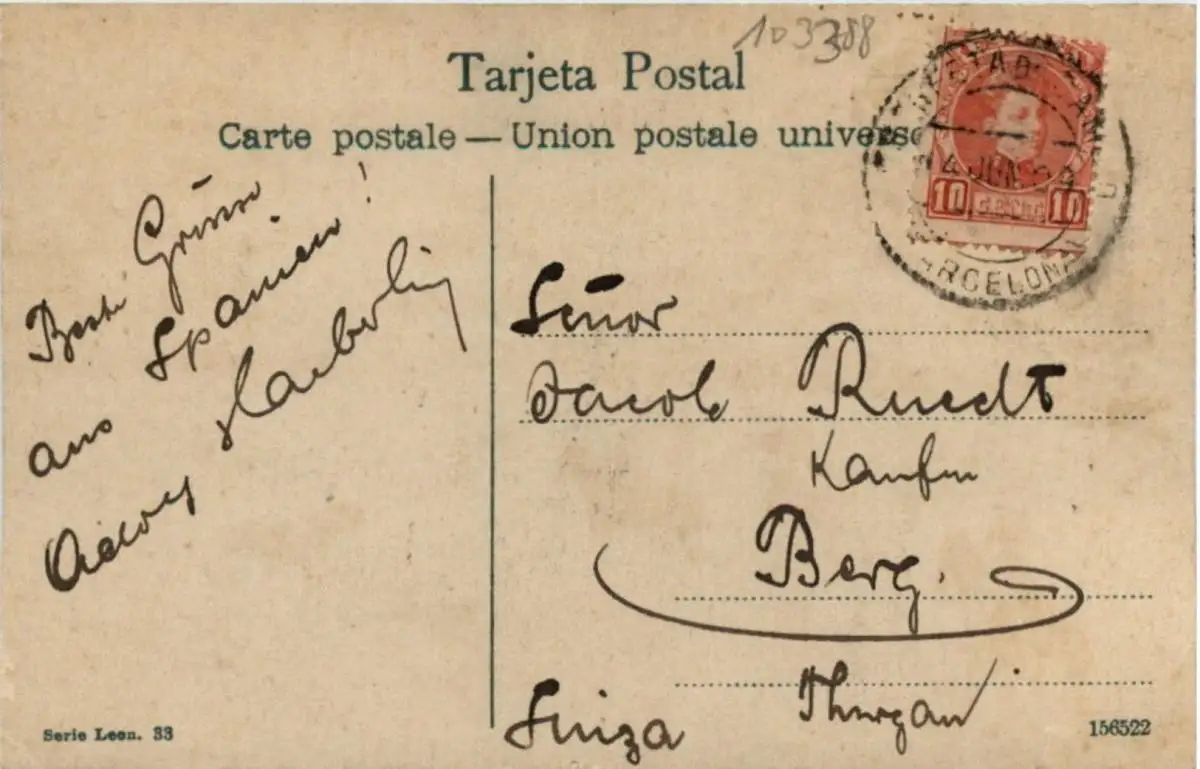 103388
Tarjeta Postal
Carte postale — Union postale universe
4 JUN
BARCELONA
10 10
Beste Grüsse
aus Spanien!
Señor
Jacob Ruedt
Kaufm
Berg.
Thurgau
Suiza
Serie Leon. 33
156522